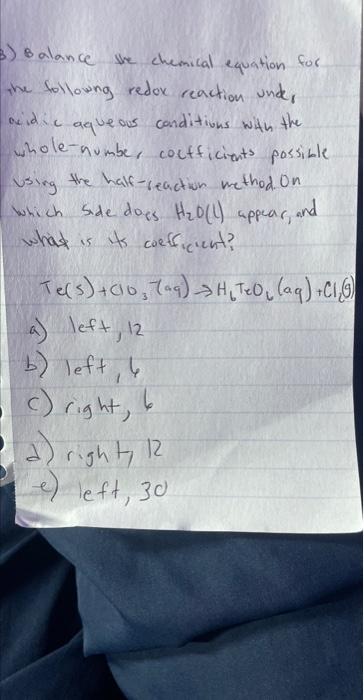 3) Balance the chemical equation for
the following redox reaction under
acidic aqueous conditions with the
whole-number coefficients possible
using the half-reaction method. On
which side does H₂O(l) appear, and
what is its coefficient?
Te(s) + ClO₃⁻(aq) → H₆TeO₆(aq) + Cl₂(g)
a) left, 12
b) left, 6
c) right, 6
d) right, 12
e) left, 30